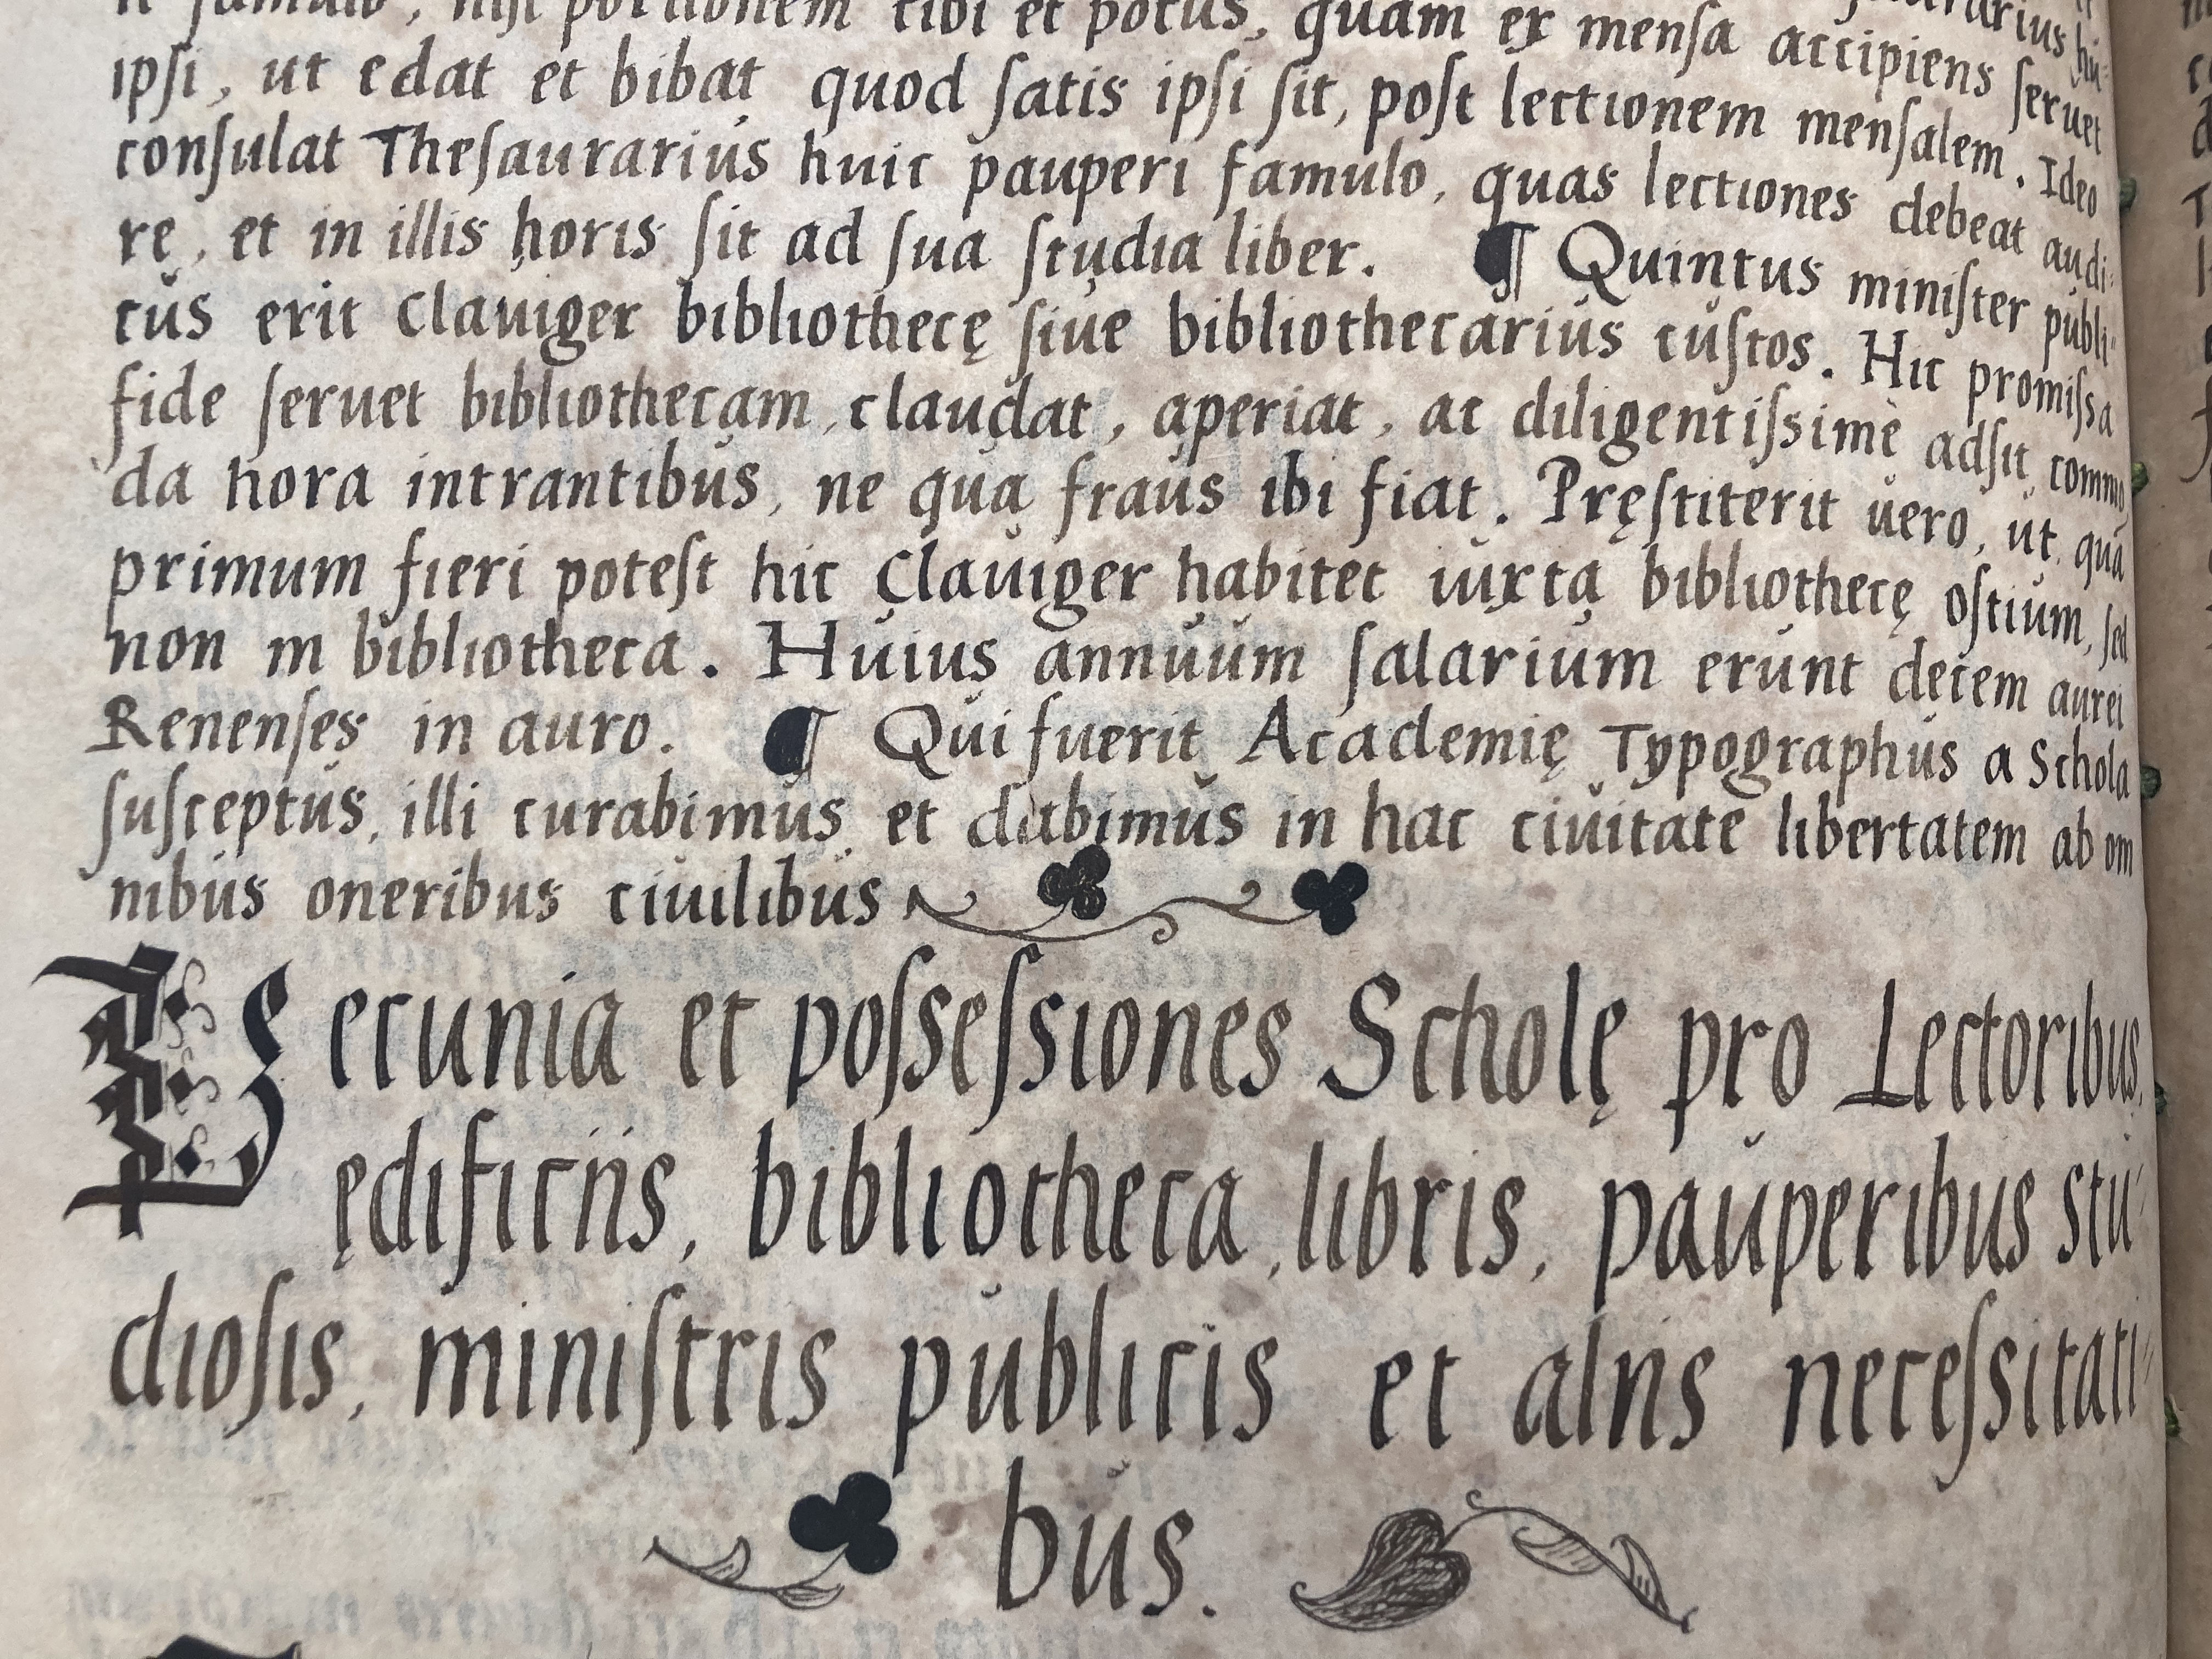 famulo, nisi portionem cibi et potus, quam ex mensa accipiens seruet
ipsi, ut edat et bibat quod satis ipsi sit, post lectionem mensalem. Ideo
consulat Thesaurarius huic pauperi famulo, quas lectiones debeat audi-
rę, et in illis horis sit ad sua studia liber. ¶ Quintus minister publi-
cus erit Clauiger bibliothecę siue bibliothecarius custos. Hic promissa
fide seruet bibliothecam, claudat, aperiat, ac diligentissimè adsit commo
da hora intrantibus, ne qua fraus ibi fiat. Pręstiterit uero, ut quā
primum fieri potest hic Clauiger habitet iuxta bibliothecę ostium, sed
non in bibliotheca. Huius annuum salarium erunt decem aurei
Renenses in auro. ¶ Qui fuerit Academię Typographus a Schola
susceptus, illi curabimus et dabimus in hac ciuitate libertatem ab om
nibus oneribus ciuilibus
Pecunia et possessiones Scholę pro Lectoribus,
ędificiis, bibliotheca, libris, pauperibus stu-
diosis, ministris publicis et aliis necessitati-
bus.